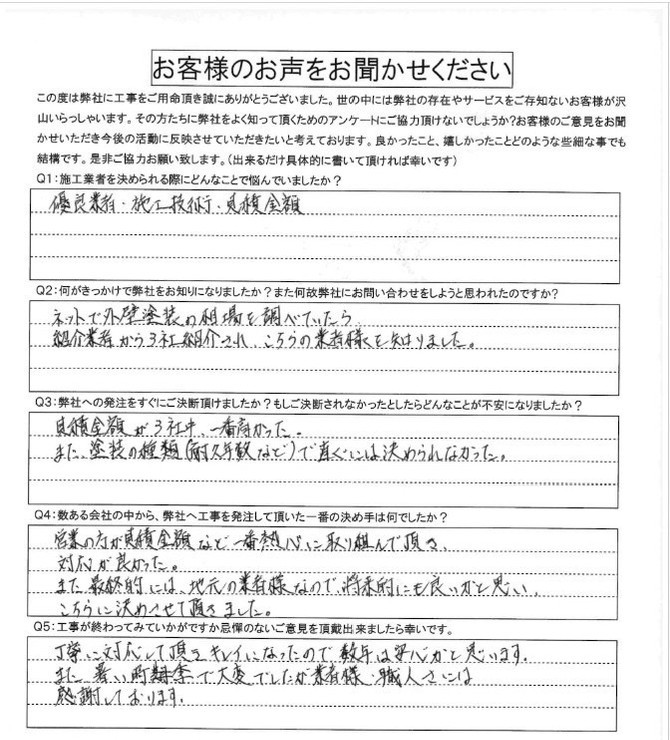 お客様のお声をお聞かせください
この度は弊社に工事をご用命頂き誠にありがとうございました。世の中には弊社の存在やサービスをご存知ないお客様が沢
山いらっしゃいます。その方たちに弊社をよく知って頂くためのアンケートにご協力頂けないでしょうか?お客様のご意見をお聞
かせいただき今後の活動に反映させていただきたいと考えております。良かったこと、嬉しかったことどのような些細な事でも
結構です。是非ご協力お願い致します。（出来るだけ具体的に書いて頂ければ幸いです）
Q1:施工業者を決められる際にどんなことで悩んでいましたか？
優良業者・施工技術・見積金額
Q2:何がきっかけで弊社をお知りになりましたか?また何故弊社にお問い合わせをしようと思われたのですか?
ネットで外壁塗装の相場を調べていたら
紹介業者から3社紹介され、こちらの業者様を知りました。
Q3:弊社への発注をすぐにご決断頂けましたか?もしご決断されなかったとしたらどんなことが不安になりましたか？
見積金額が3社中、一番高かった。
また、塗装の種類(耐久年数など)で直ぐには決められなかった。
Q4:数ある会社の中から、弊社へ工事を発注して頂いた一番の決め手は何でしたか？
営業の方が見積金額など一番熱心に取り組んで頂き、
対応が良かった。
また最終的には、地元の業者様なので、将来的にも良いかと思い、
こちらに決めさせて頂きました。
Q5:工事が終わってみていかがですか忌憚のないご意見を頂戴出来ましたら幸いです。
丁寧に対応して頂きキレイになったので数年は安心かと思います。
また、暑い時期で大変でしたが業者様・職人さんには
感謝しております。